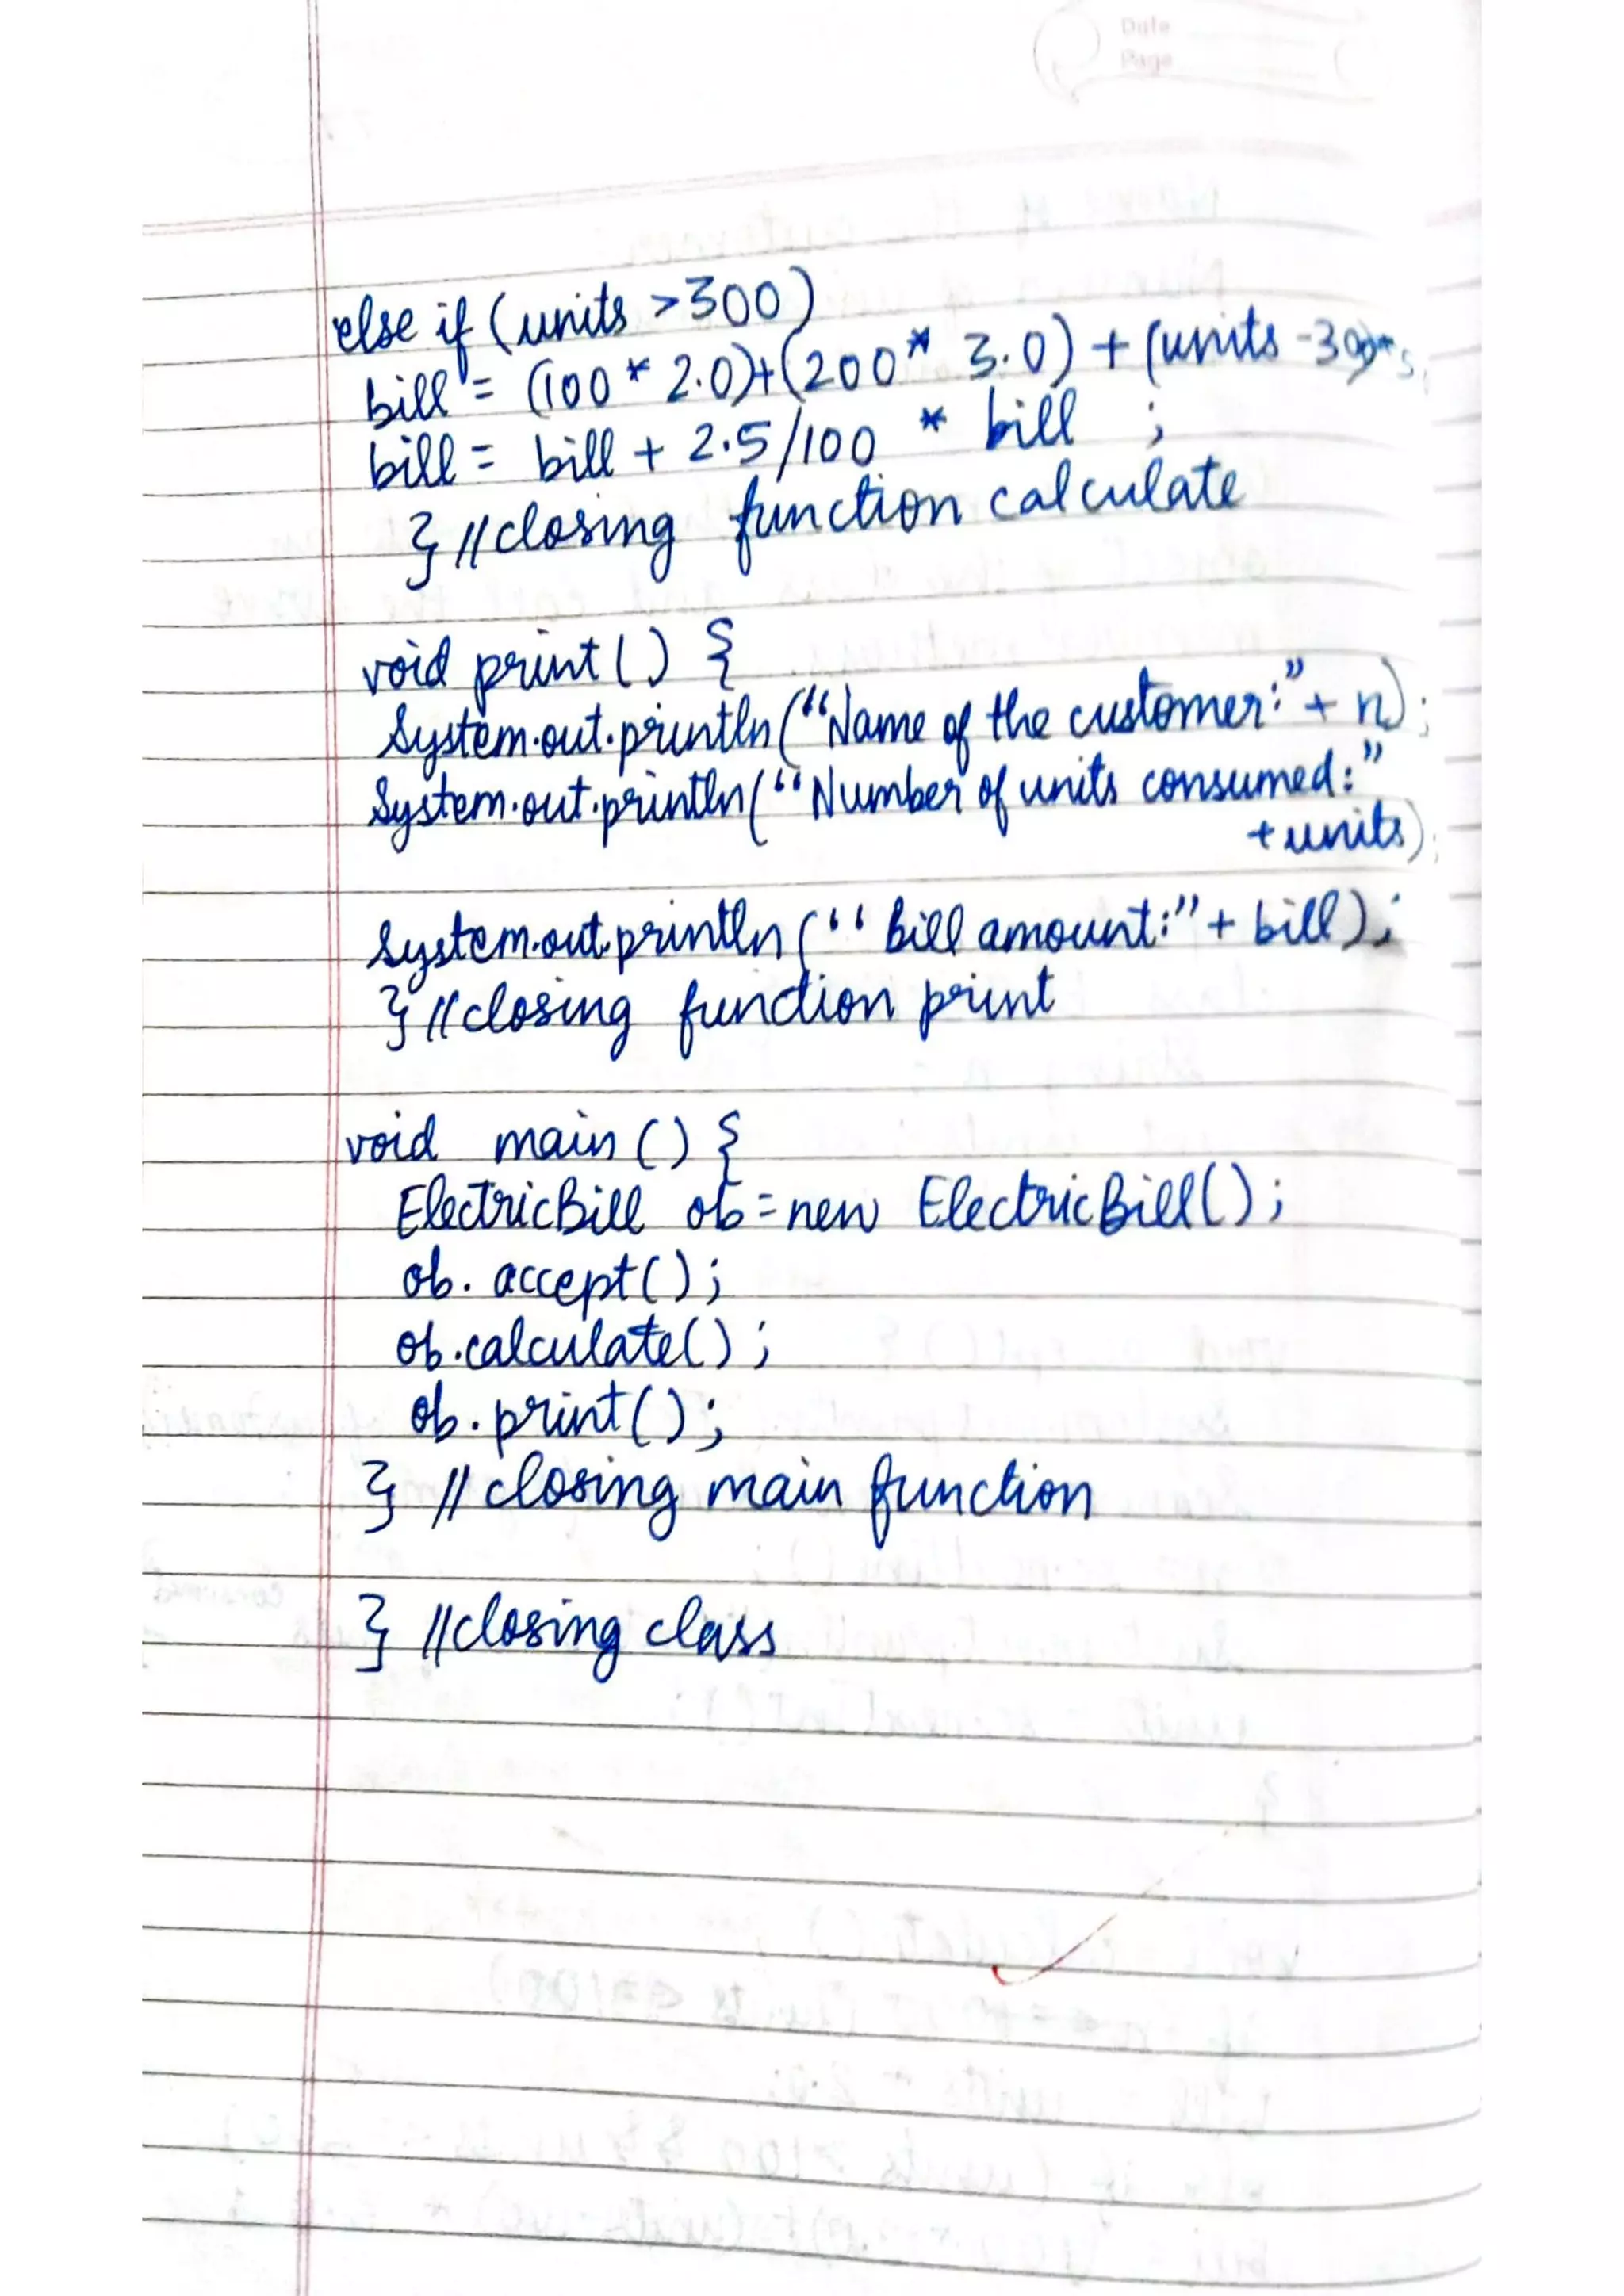 Date
Page
else if (units >300)
bill = (100 * 2.0)+(200* 3.0) + (units -300)*
bill = bill + 2.5/100 * bill ;
} //closing function calculate
void print() {
System.out.println("Name of the customer:"+ n);
System.out.println("Number of units consumed:"
+units);
System.out.println(" bill amount:"+ bill);
} //closing function print
void main () {
ElectricBill ob=new ElectricBill();
ob. accept();
ob.calculate();
ob.print();
} // closing main function
} //closing class